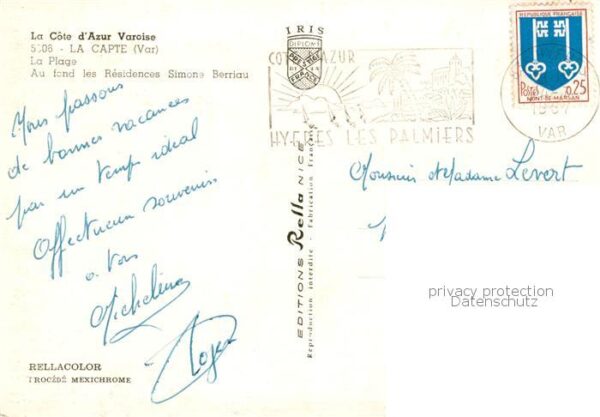 La Côte d'Azur Varoise
5308 - LA CAPTE (Var)
La Plage
Au fond les Résidences Simone Berriau
Nous passons
de bonnes vacances
par un temps idéal
Affectueux souvenirs
à tous
Micheline
Roger
RELLACOLOR
PROCÉDÉ MEXICHROME
IRIS
DIPLOME
PRESTIGE
DE LA
FRANCE
EDITIONS Rella NICE
Reproduction interdite - Fabrication Française
COTE D'AZUR
HYERES LES PALMIERS
REPUBLIQUE FRANÇAISE
Postes 0,25
MONT-DE-MARSAN
1967
VAR
Monsieur et Madame Levert
privacy protection
Datenschutz